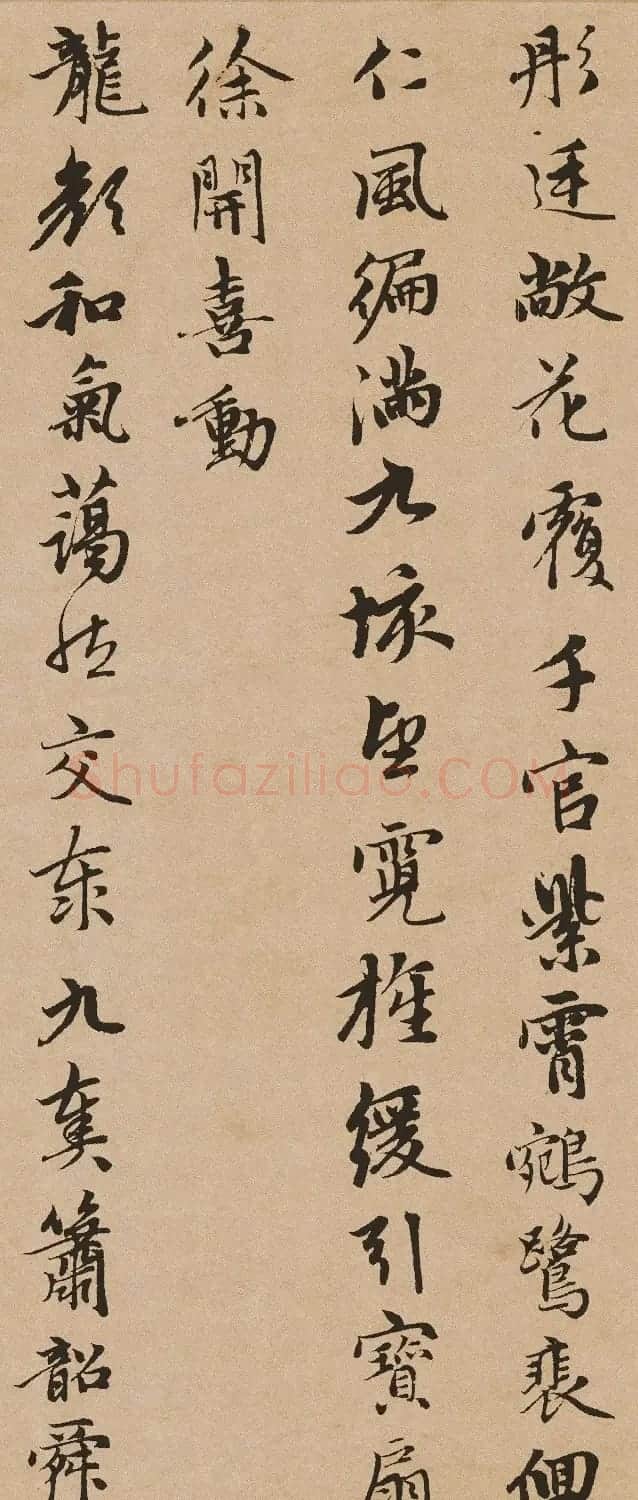 彤廷敞花覆千官紫霄鵷鷺裴佪
仁風徧滿九垓望霓旌緩引寶扇
徐開喜動
龍顏和氣藹然交泰九奏簫韶舜
Shufaziliao.COM